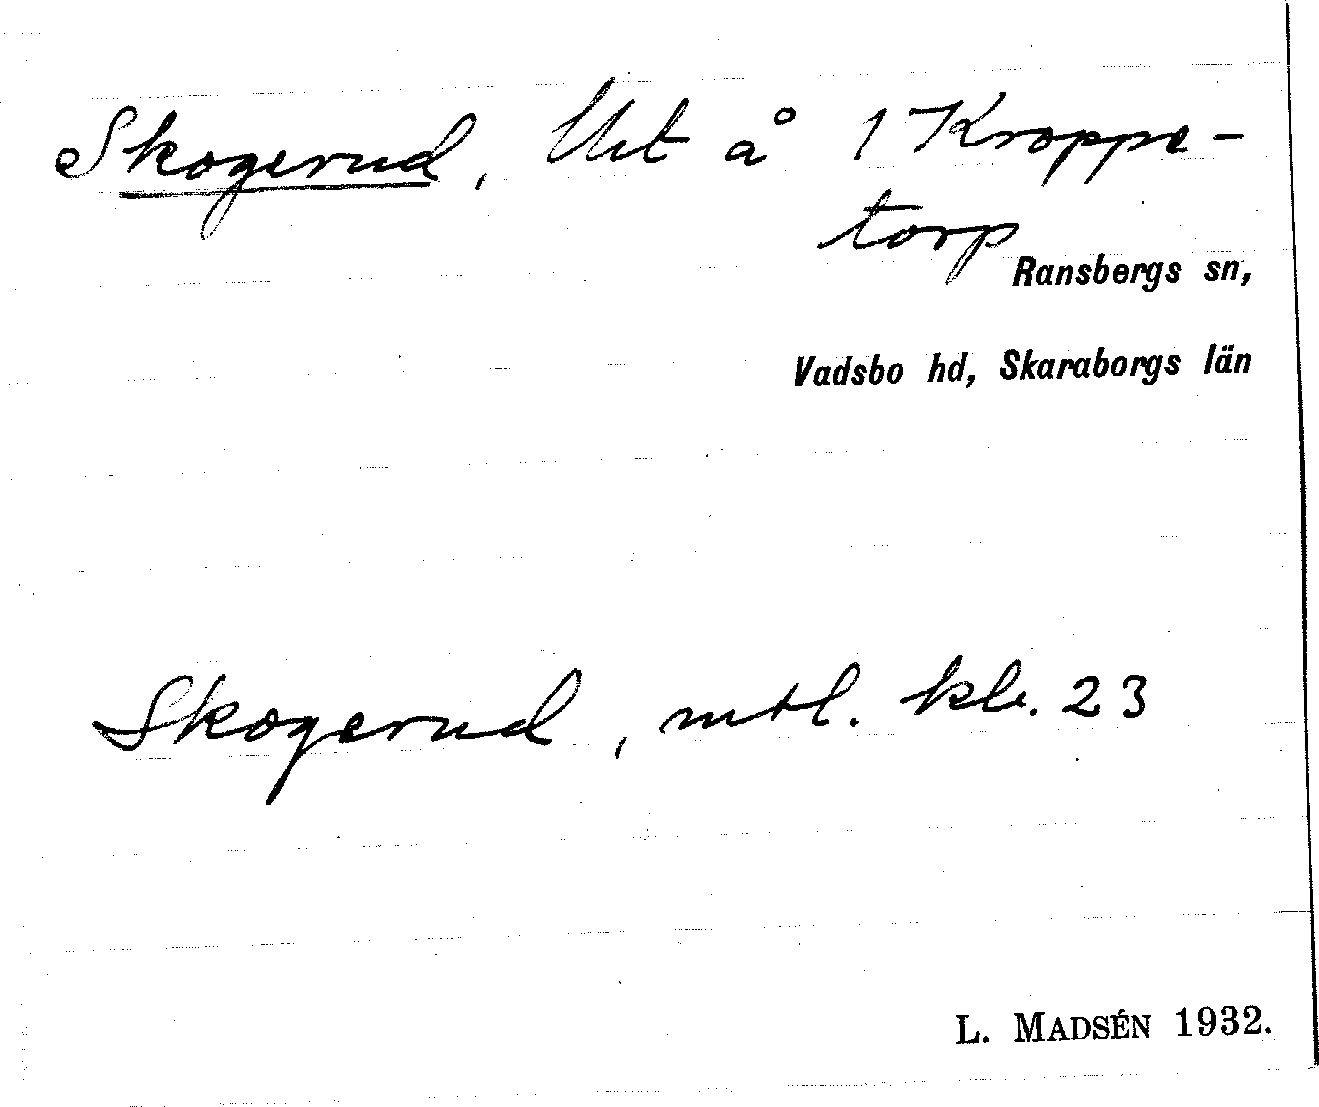 Skogerud, Utet å 1 Kroppe-
torp
Ransbergs sn,
Vadsbo hd, Skaraborgs län
Skogerud, mtl. kb. 23
L. MADSÉN 1932.